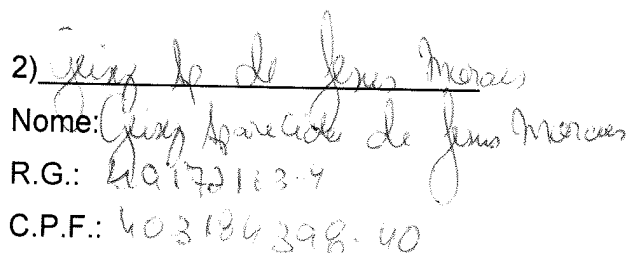 2) Geisy Ap de Jesus Moraes
Nome: Geisy Aparecida de Jesus Moraes
R.G.:
C.P.F.: 403184398-40